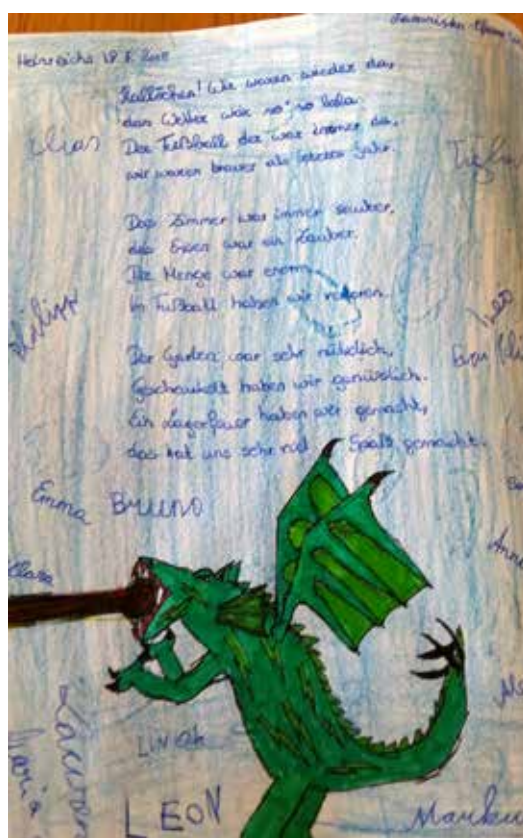 Heinreichs 18.5.2018
Hallöchen! Wir waren wieder da,
das Wetter war so so lala.
Der Fußball der war immer da,
wir waren braver als letztes Jahr.
Das Zimmer war immer sauber,
das Essen war ein Zauber.
Die Menge war enorm
im Fußball haben wir verloren.
Der Garten war sehr nützlich,
Geschaukelt haben wir gemütlich.
Ein Lagerfeuer haben wir gemacht,
das hat uns sehr viel Spaß gemacht.
Elias
Philipp
Leo
Emma
BRUNO
Clara
LEON
Maria